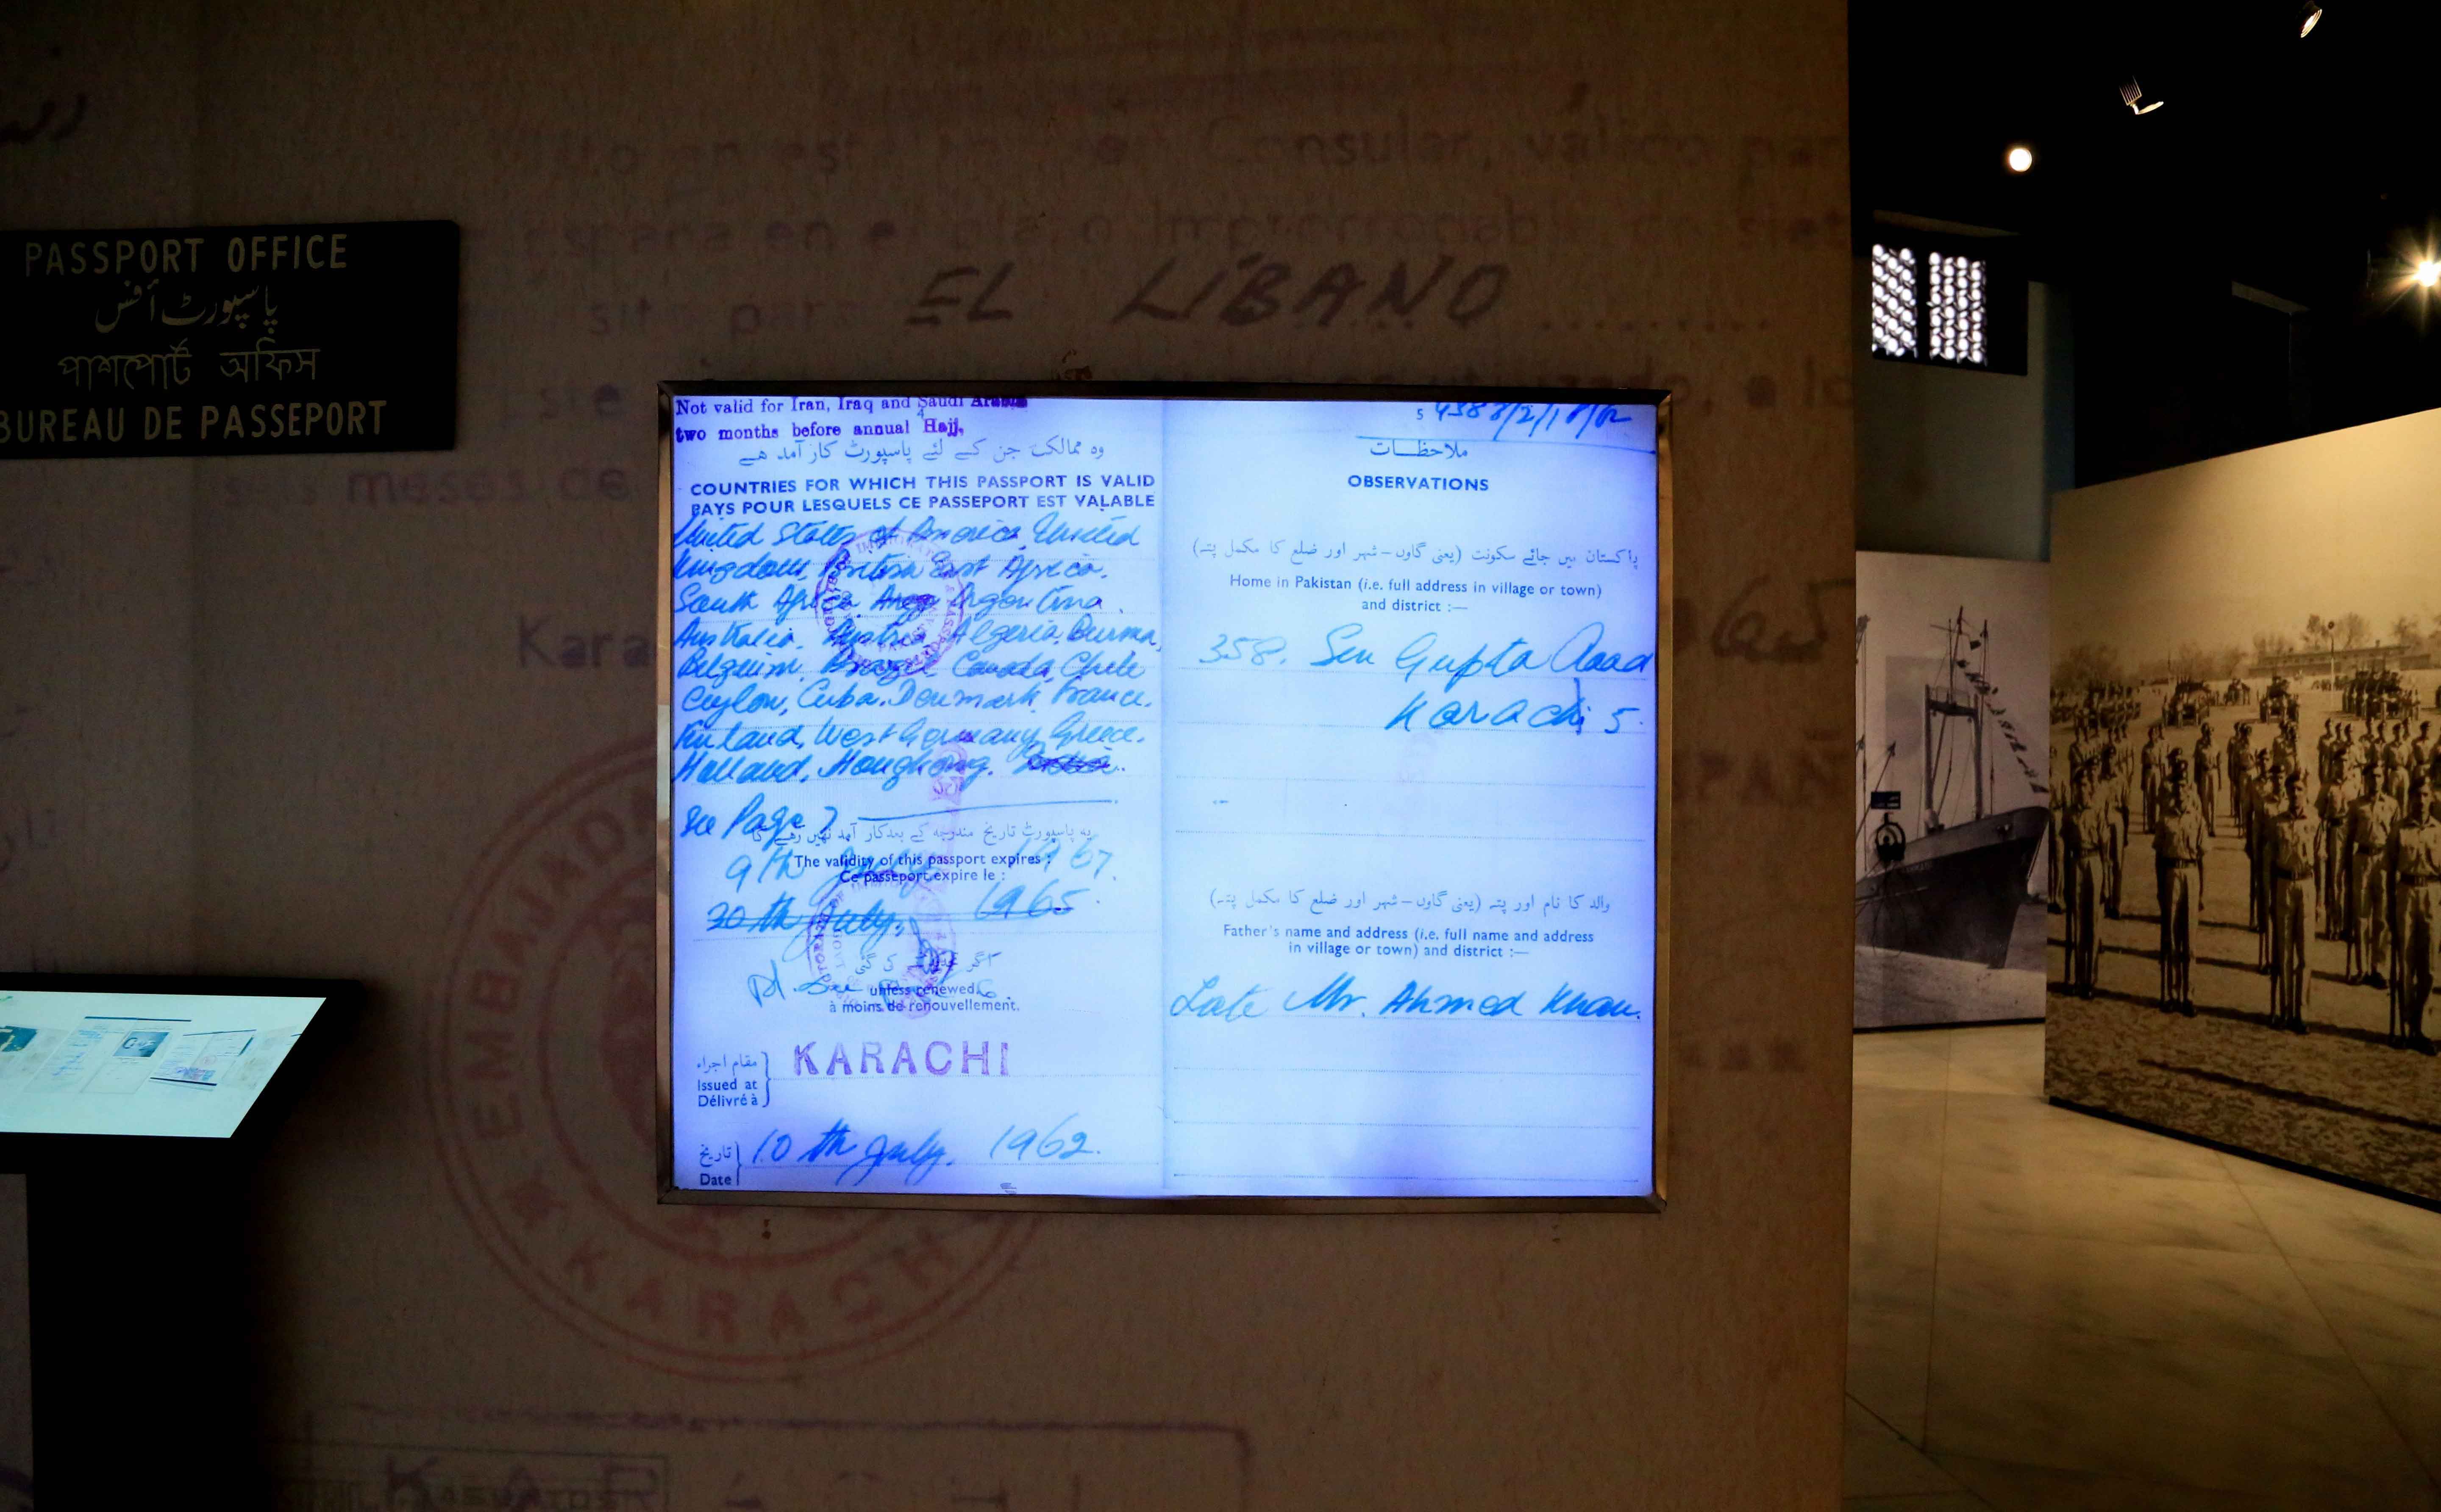 PASSPORT OFFICE
پاسپورٹ آفس
পাশপোর্ট অফিস
BUREAU DE PASSEPORT
Consular, válido par
improrrogable
para EL LÍBANO
meses de
Kara
65
EMBAJADA
KARACHI
Not valid for Iran, Iraq and Saudi Arabia
4
two months before annual Hajj.
وہ ممالک جن کے لئے پاسپورٹ کار آمد ہے
COUNTRIES FOR WHICH THIS PASSPORT IS VALID
PAYS POUR LESQUELS CE PASSEPORT EST VALABLE
United States of America, United
Kingdom, British East Africa.
South Africa Argentina.
Australia. Austria Algeria. Burma,
Belguim. Brazil. Canada, Chile
Ceylon, Cuba. Denmark, France.
Finland, West Germany, Greece.
Holland, Hongkong.
See Page 7
یہ پاسپورٹ تاریخ مندرجہ کے بعد کار آمد نہیں رہے گا
The validity of this passport expires :
9th July 1967.
Ce passeport expire le :
20th July, 1965.
اگر تجدید نہ کی گئی
unless renewed.
à moins de renouvellement.
مقام اجراء
Issued at
Délivré à
KARACHI
تاریخ
Date
10th July. 1962.
5
ملاحظات
OBSERVATIONS
پاکستان میں جائے سکونت (یعنی گاوں – شہر اور ضلع کا مکمل پتہ)
Home in Pakistan (i.e. full address in village or town)
and district :—
358. Sen Gupta Road
Karachi 5.
والد کا نام اور پتہ (یعنی گاوں – شہر اور ضلع کا مکمل پتہ)
Father's name and address (i.e. full name and address
in village or town) and district :—
Late Mr. Ahmed Khan.